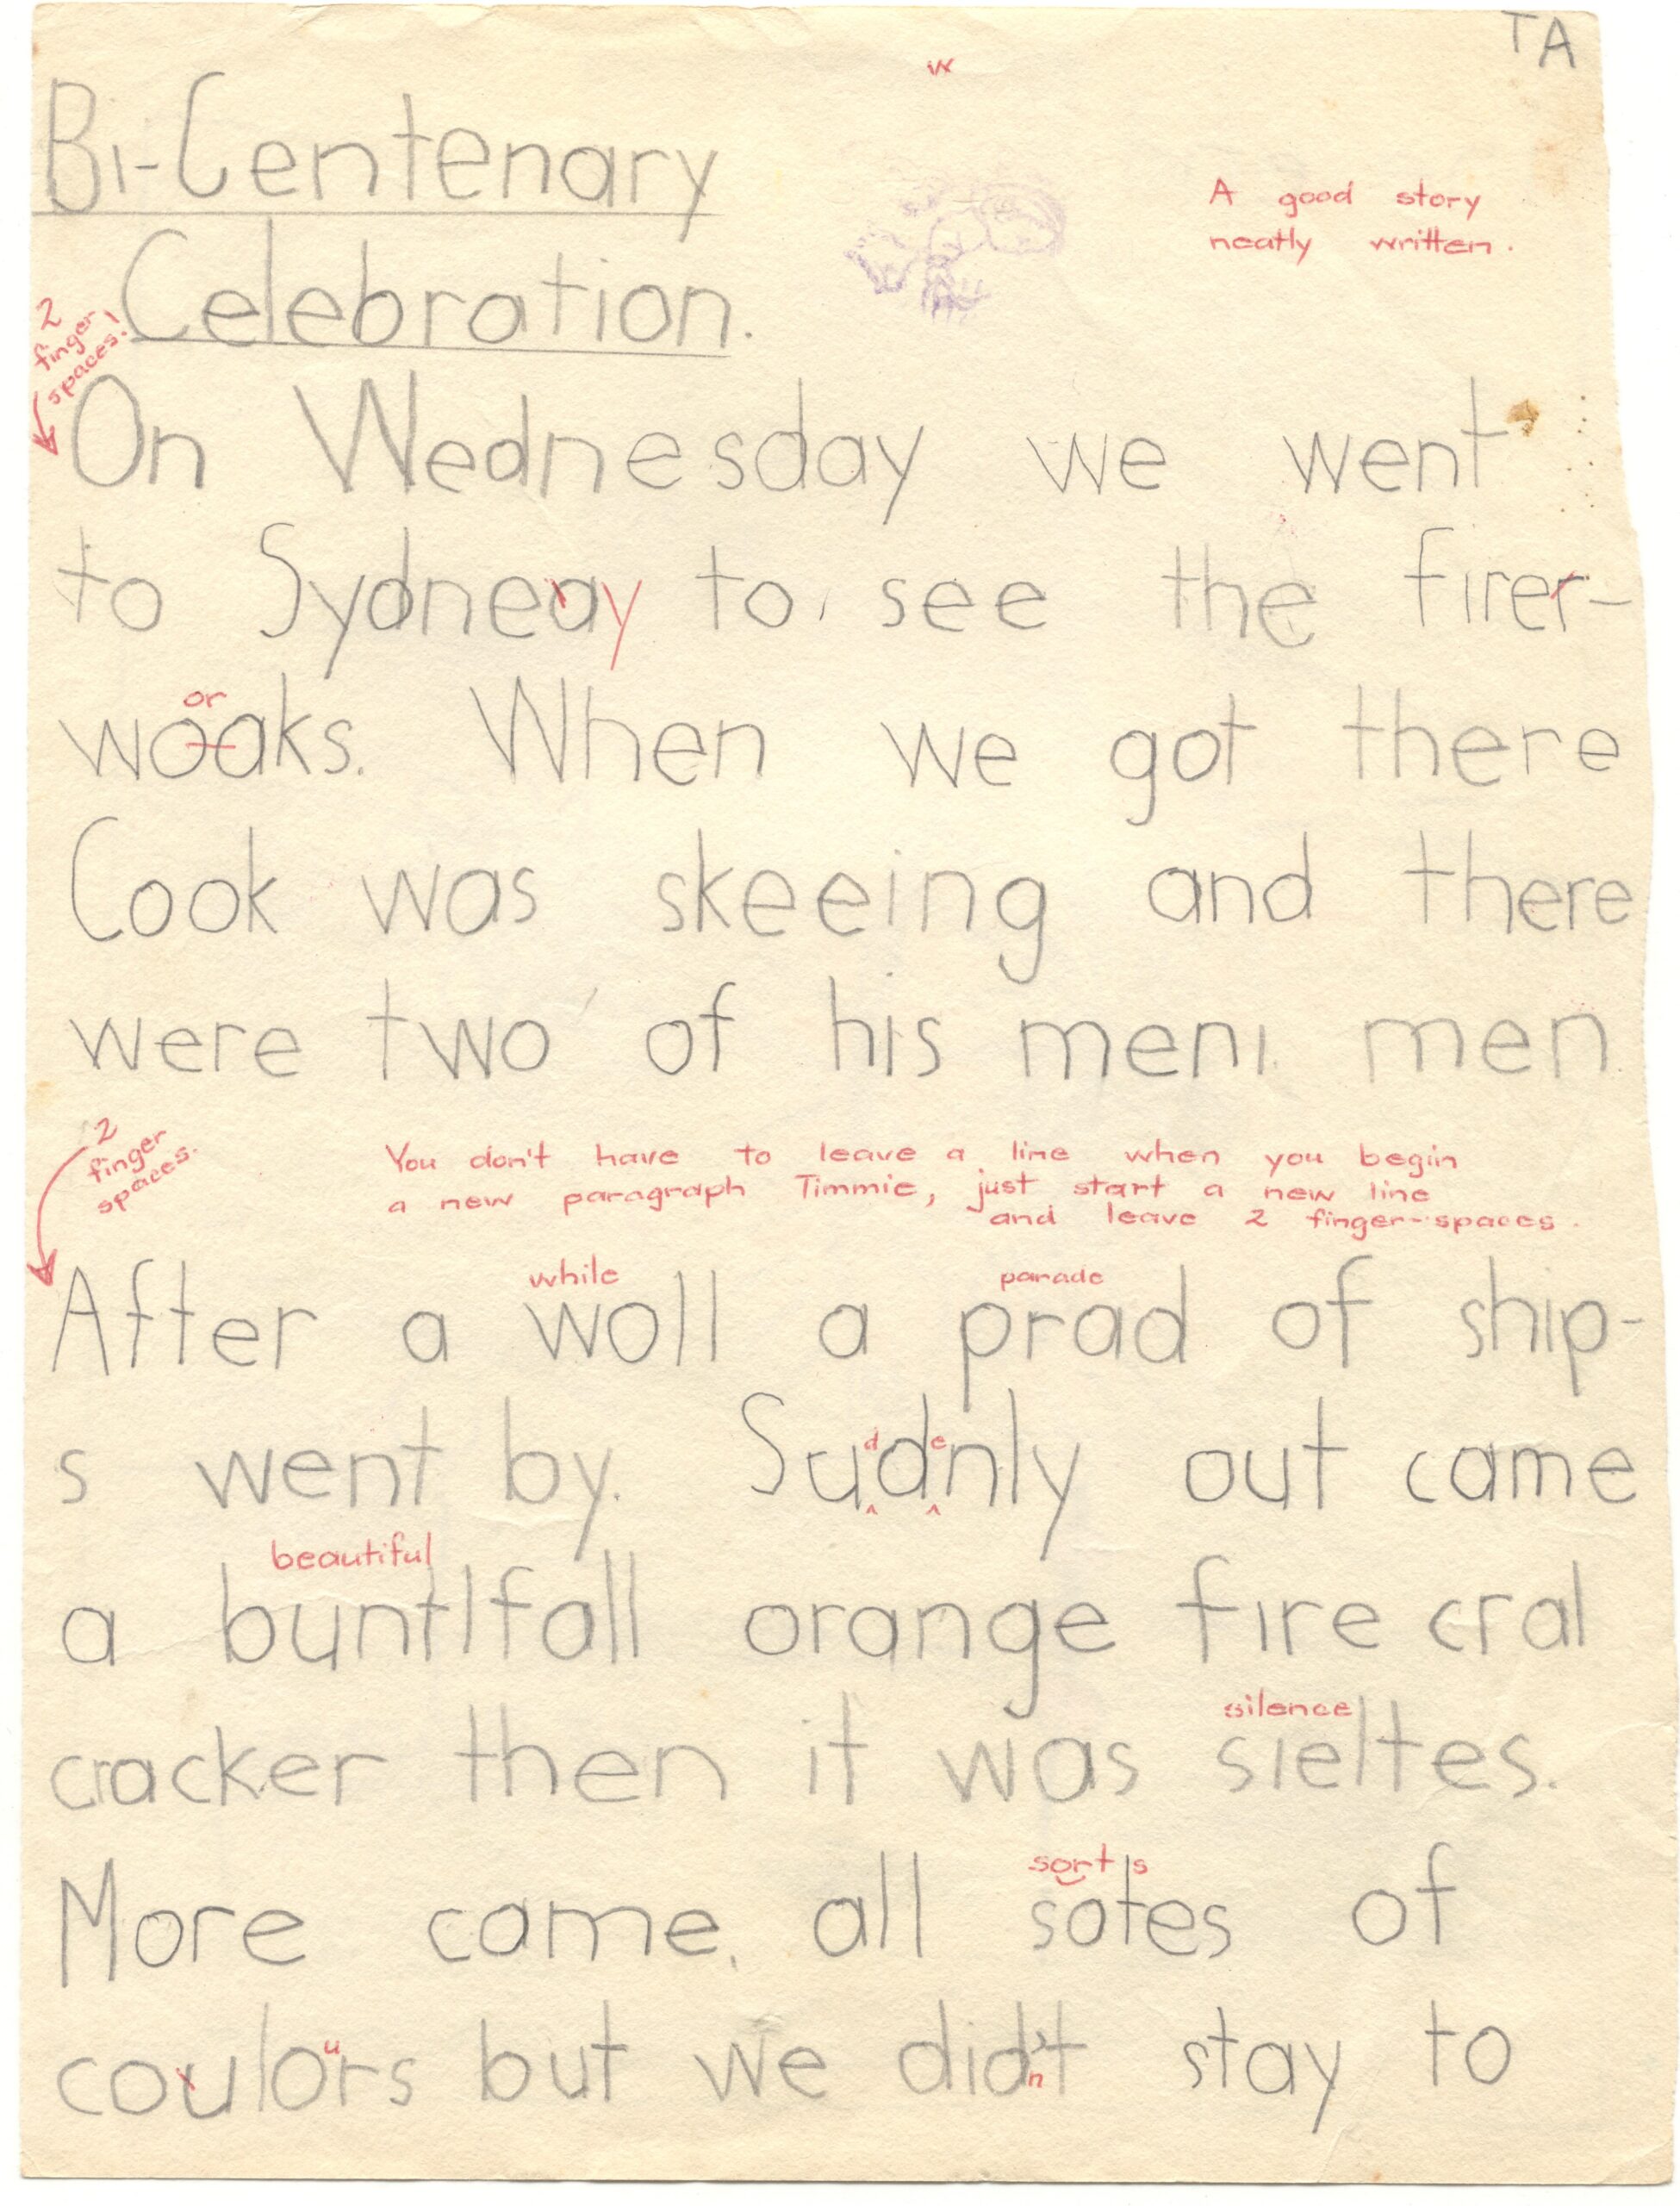 TA
w
Bi-Centenary
A good story
neatly written.
Celebration.
2
finger
spaces!
On Wednesday we went
to Sydneay to see the firer-
or
woaks. When we got there
Cook was skeeing and there
were two of his meni men
2
finger
spaces.
You don't have to leave a line when you begin
a new paragraph Timmie, just start a new line
and leave 2 finger-spaces.
while parade
After a woll a prad of ship-
d e
s went by. Sudnly out came
beautiful
a buntlfall orange fire cral
silence
cracker then it was sieltes.
sort s
More came, all sotes of
u
coulors but we did't stay to
n